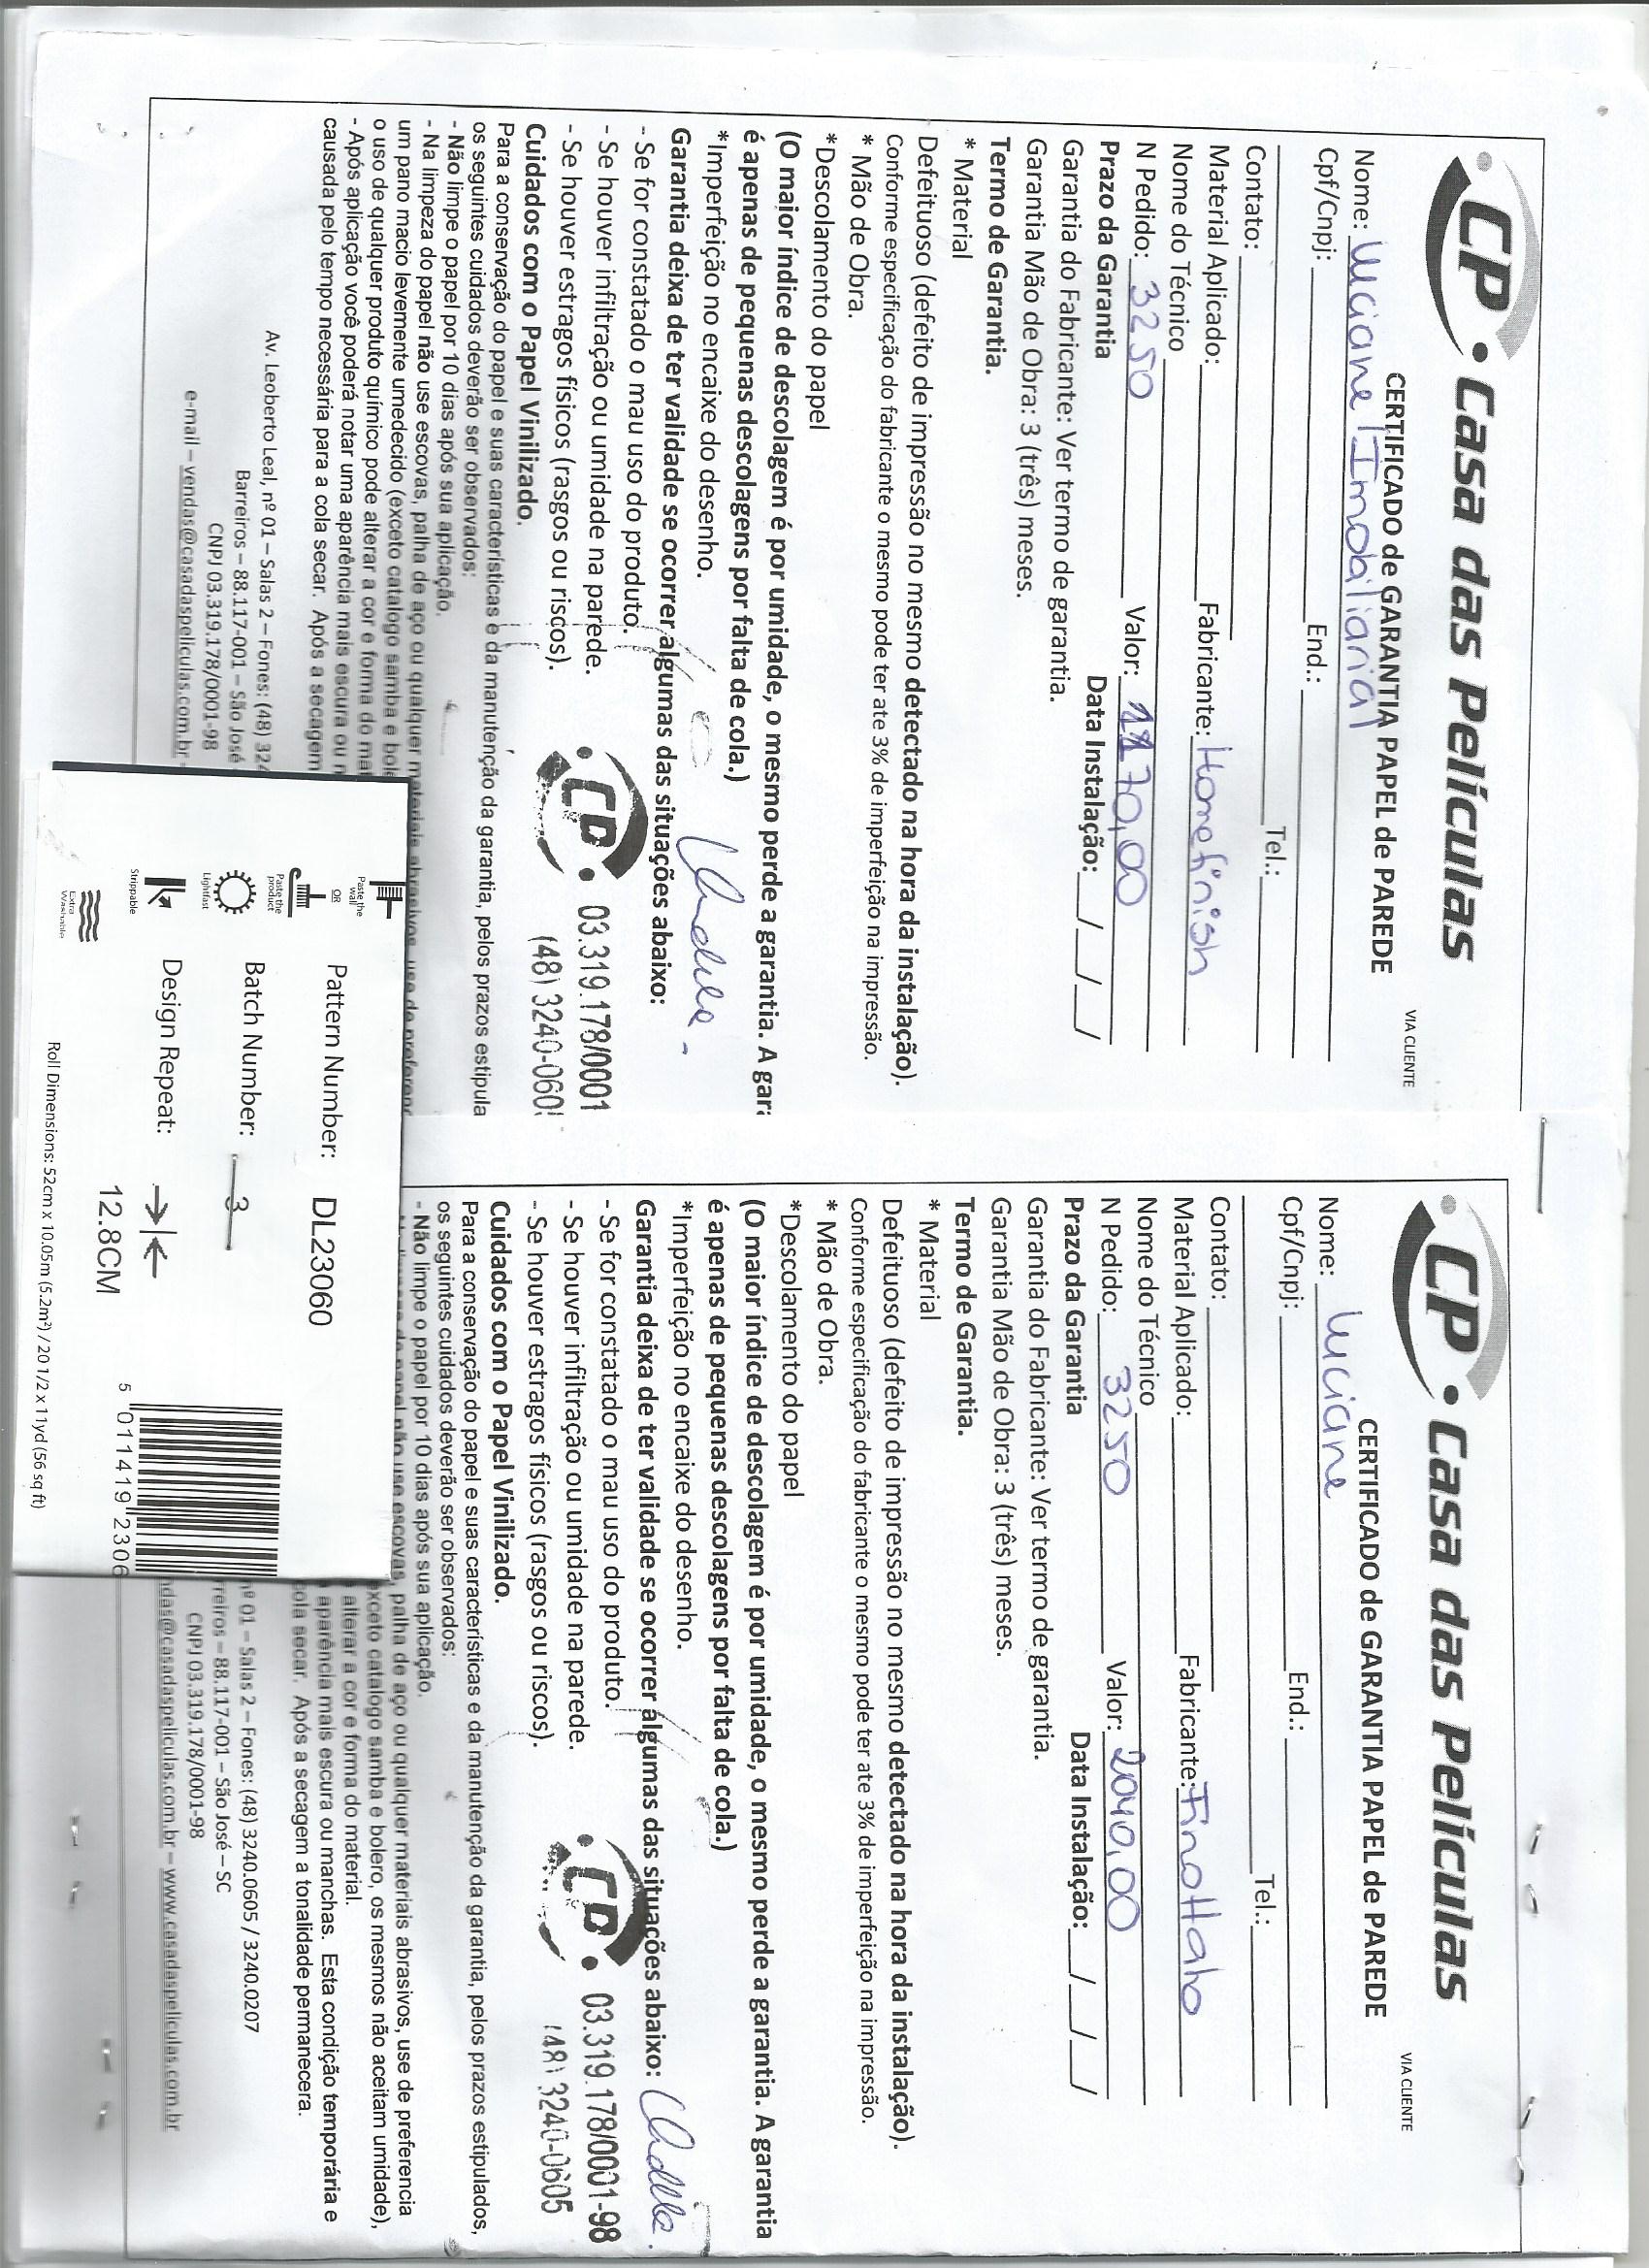 CP • Casa das Películas
VIA CLIENTE
CERTIFICADO de GARANTIA PAPEL de PAREDE
Nome: Luciane (Imobiliaria)
Cpf/Cnpj: End.:
Contato: Tel.:
Material Aplicado:
Fabricante: Homefinish
Nome do Técnico
N Pedido: 3250 Valor: 1170,00
Prazo da Garantia Data Instalação: / /
Garantia do Fabricante: Ver termo de garantia.
Garantia Mão de Obra: 3 (três) meses.
Termo de Garantia.
* Material
Defeituoso (defeito de impressão no mesmo detectado na hora da instalação).
Conforme especificação do fabricante o mesmo pode ter ate 3% de imperfeição na impressão.
* Mão de Obra.
*Descolamento do papel
(O maior índice de descolagem é por umidade, o mesmo perde a garantia. A gara
é apenas de pequenas descolagens por falta de cola.)
*Imperfeição no encaixe do desenho.
Garantia deixa de ter validade se ocorrer algumas das situações abaixo:
- Se for constatado o mau uso do produto.
- Se houver infiltração ou umidade na parede.
- Se houver estragos físicos (rasgos ou riscos).
CP 03.319.178/0001
(48) 3240-060
Cuidados com o Papel Vinilizado.
Para a conservação do papel e suas características e da manutenção da garantia, pelos prazos estipula
os seguintes cuidados deverão ser observados:
- Não limpe o papel por 10 dias após sua aplicação.
- Na limpeza do papel não use escovas, palha de aço ou qualquer materiais abrasivos, use de preferenc
um pano macio levemente umedecido (exceto catalogo samba e bole
o uso de qualquer produto químico pode alterar a cor e forma do mat
- Após aplicação você poderá notar uma aparência mais escura ou m
causada pelo tempo necessária para a cola secar. Após a secagem
Av. Leoberto Leal, nº 01 – Salas 2 – Fones: (48) 324
Barreiros – 88.117-001 – São José
CNPJ 03.319.178/0001-98
e-mail – vendas@casadaspeliculas.com.br –
CP • Casa das Películas
VIA CLIENTE
CERTIFICADO de GARANTIA PAPEL de PAREDE
Nome: Luciane
Cpf/Cnpj: End.:
Contato: Tel.:
Material Aplicado: Fabricante: Finottato
Nome do Técnico
N Pedido: 3250 Valor: 2040,00
Prazo da Garantia Data Instalação: / /
Garantia do Fabricante: Ver termo de garantia.
Garantia Mão de Obra: 3 (três) meses.
Termo de Garantia.
* Material
Defeituoso (defeito de impressão no mesmo detectado na hora da instalação).
Conforme especificação do fabricante o mesmo pode ter ate 3% de imperfeição na impressão.
* Mão de Obra.
*Descolamento do papel
(O maior índice de descolagem é por umidade, o mesmo perde a garantia. A garantia
é apenas de pequenas descolagens por falta de cola.)
*Imperfeição no encaixe do desenho.
Garantia deixa de ter validade se ocorrer algumas das situações abaixo:
- Se for constatado o mau uso do produto.
- Se houver infiltração ou umidade na parede.
- Se houver estragos físicos (rasgos ou riscos).
CP 03.319.178/0001-98
(48) 3240-0605
Cuidados com o Papel Vinilizado.
Para a conservação do papel e suas características e da manutenção da garantia, pelos prazos estipulados,
os seguintes cuidados deverão ser observados:
- Não limpe o papel por 10 dias após sua aplicação.
papel não use escovas, palha de aço ou qualquer materiais abrasivos, use de preferencia
exceto catalogo samba e bolero, os mesmos não aceitam umidade),
alterar a cor e forma do material.
aparência mais escura ou manchas. Esta condição temporária e
cola secar. Após a secagem a tonalidade permanecera.
nº 01 – Salas 2 – Fones: (48) 3240.0605 / 3240.0207
reiros – 88.117-001 – São José – SC
CNPJ 03.319.178/0001-98
ndas@casadaspeliculas.com.br – www.casadaspeliculas.com.br
Paste the wall
OR
Paste the product
Lightfast
Strippable
Extra Washable
Pattern Number: DL23060
Batch Number: 3
Design Repeat: 12.8CM
5 011419 2306
Roll Dimensions: 52cm x 10.05m (5.2m²) / 20 1/2 x 11yd (56 sq ft)